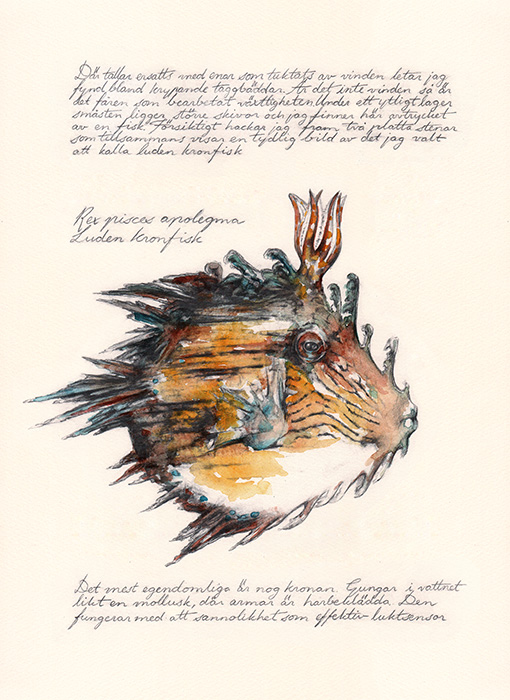 Där tallar ersatts med enar som tuktats av vinden letar jag
fynd bland krypande taggbäddar. Är det inte vinden så är
det fåren som bearbetat växtligheten. Under ett ytligt lager
småsten ligger större skivor och jag finner här avtrycket
av en fisk. Försiktigt hackar jag fram två platta stenar
som tillsammans visar en tydlig bild av det jag valt
att kalla luden kronfisk
Rex pisces apolegma
Luden Kronfisk
Det mest egendomliga är nog kronan. Gungar i vattnet
likt en mollusk, där armar är hårbeklädda. Den
fungerar med att sannolikhet som effektiv luktsensor